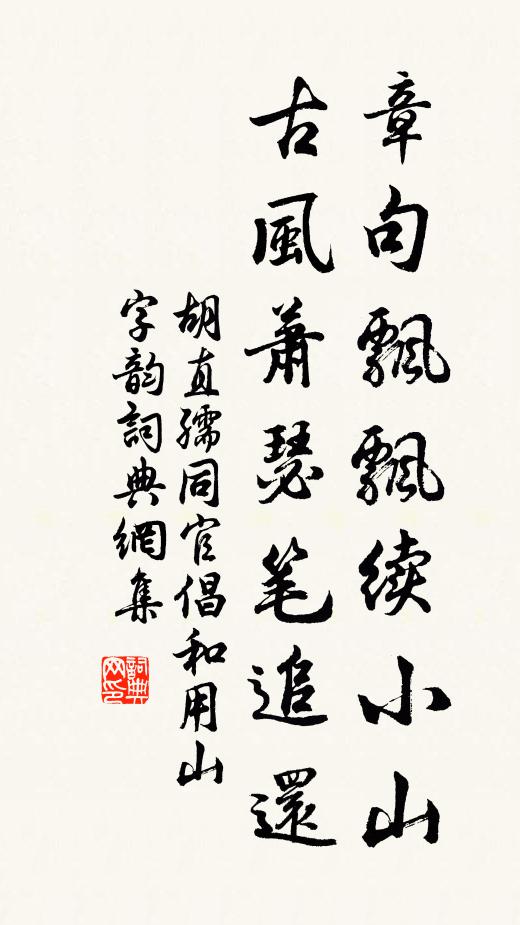 章句飄飄续小山
古風蕭瑟笔追還
胡直孺同官倡和用山
字韵詞典網集
詞典网印